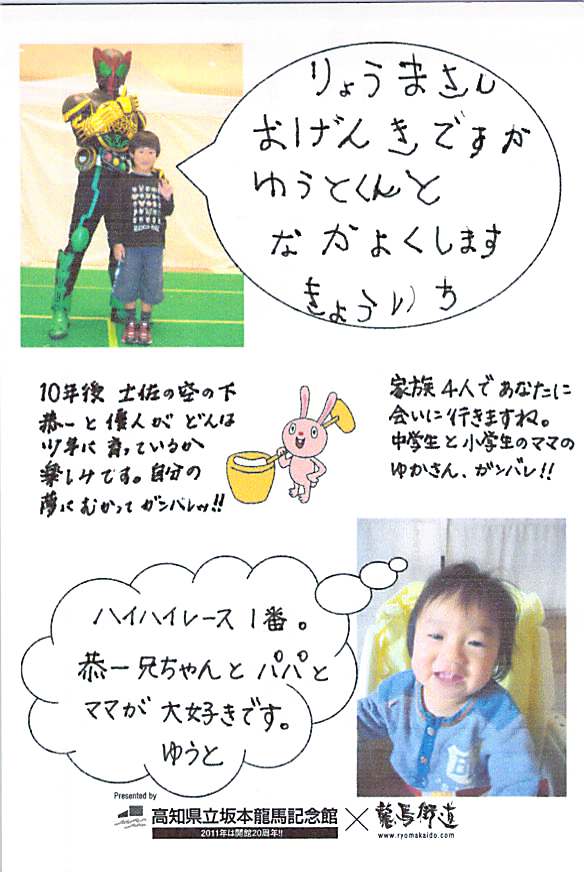 りょうまさん
おげんきですか
ゆうとくんと
なかよくします
きょういち
10年後 土佐の空の下
恭一と優人が どんな
少年に 育っているか
楽しみです。自分の
夢に むかって ガンバレッ!!
家族4人であなたに
会いに行きますね。
中学生と小学生のママの
ゆかさん、ガンバレ!!
ハイハイレース 1番。
恭一兄ちゃんと パパと
ママが 大好きです。
ゆうと
Presented by
高知県立坂本龍馬記念館 × 龍馬街道
2011年は開館20周年!!
www.ryomakaido.com